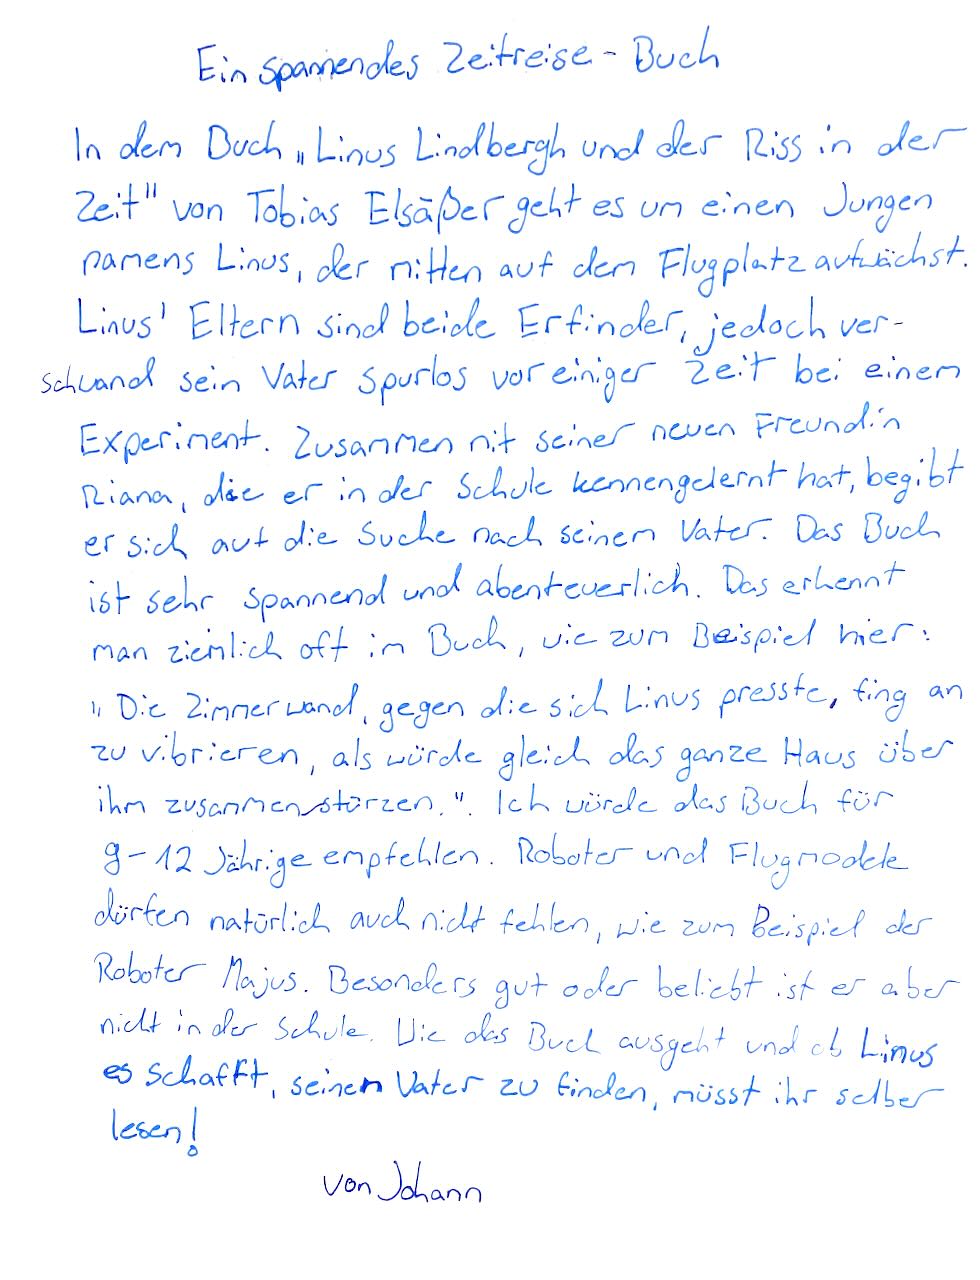 Ein spannendes Zeitreise-Buch
In dem Buch „Linus Lindbergh und der Riss in der
Zeit" von Tobias Elsäßer geht es um einen Jungen
namens Linus, der mitten auf dem Flugplatz aufwächst.
Linus' Eltern sind beide Erfinder, jedoch ver-
schwand sein Vater spurlos vor einiger Zeit bei einem
Experiment. Zusammen mit seiner neuen Freundin
Riana, die er in der Schule kennengelernt hat, begibt
er sich auf die Suche nach seinem Vater. Das Buch
ist sehr spannend und abenteuerlich. Das erkennt
man ziemlich oft im Buch, wie zum Beispiel hier:
„Die Zimmerwand, gegen die sich Linus presste, fing an
zu vibrieren, als würde gleich das ganze Haus über
ihm zusammenstürzen.". Ich würde das Buch für
9-12 Jährige empfehlen. Roboter und Flugmodelle
dürfen natürlich auch nicht fehlen, wie zum Beispiel der
Roboter Majus. Besonders gut oder beliebt ist er aber
nicht in der Schule. Wie das Buch ausgeht und ob Linus
es schafft, seinen Vater zu finden, müsst ihr selber
lesen!
von Johann